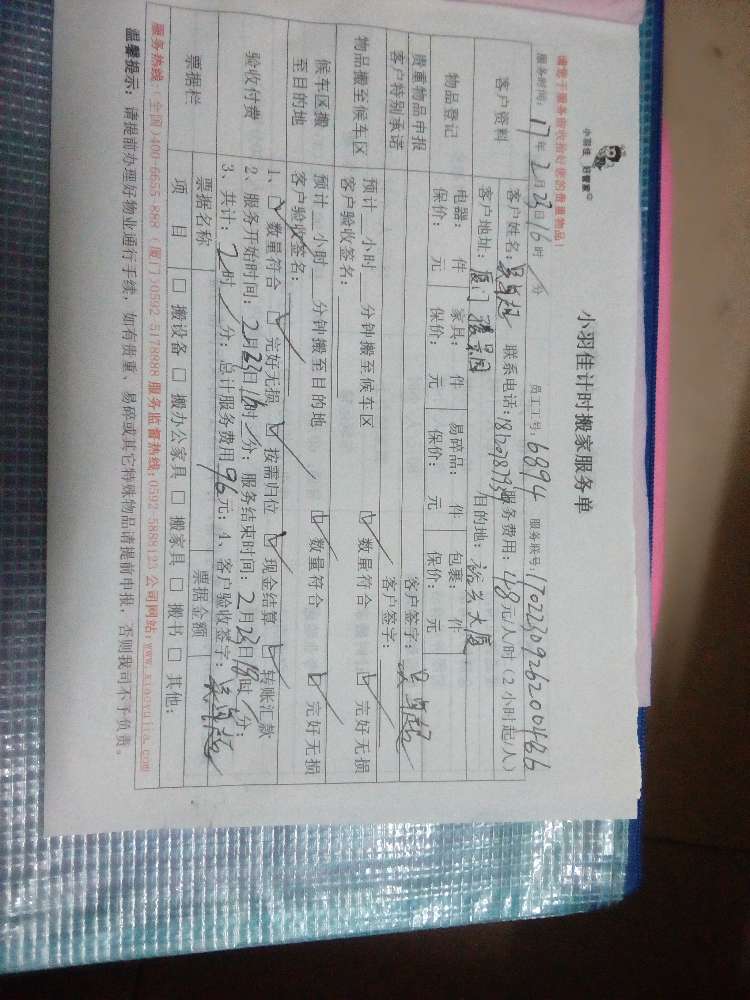 小羽佳 好管家
小羽佳计时搬家服务单
请您于服务前收拾好您的贵重物品!
员工工号: 6894 服务账号:
服务时间: 17年2月23日16时 分
客户资料
客户姓名: 联系电话: 服务费用: 48元/人时(2小时起/人)
客户地址: 厦门 目的地: 裕兴大厦
物品登记
电器: 件 家具: 件 易碎品: 件 包裹: 件
保价: 元 保价: 元 保价: 元 保价: 元
贵重物品申报 客户签字:
客户特别承诺 客户签字:
物品搬至候车区
预计 小时 分钟搬至候车区 数量符合 完好无损
客户验收签名:
候车区搬至目的地
预计 小时 分钟搬至目的地 数量符合 完好无损
客户验收签名:
验收付费
1、 数量符合 完好无损 按需归位 现金结算 转账汇款
2、服务开始时间: 2月23日16时 分; 服务结束时间: 2月23日18时 分;
3、共计: 2时 分; 总计服务费用96元; 4、客户验收签字:
票据栏
票据名称 票据金额
项 目 □ 搬设备 □ 搬办公家具 □ 搬家具 □ 搬书 □ 其他:
服务热线:(全国)400-6655-888 (厦门)0592-5178888 服务监督热线:0592-5888123 公司网站:www.xiaoyujia.com
温馨提示: 请提前办理好物业通行手续, 如有贵重、易碎或其它特殊物品请提前申报, 否则我司不予负责。